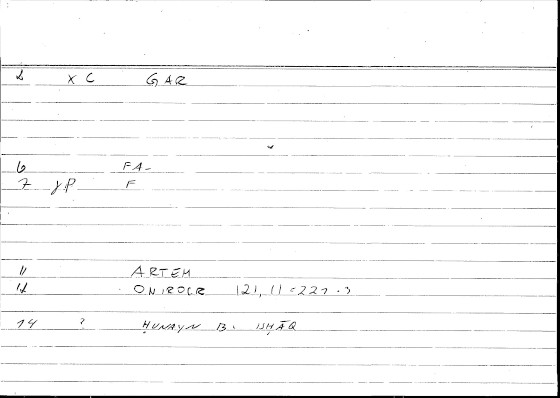 x C GAR
6 FA-
7 γP F
11 ARTEM
12 ONIROCR 121, 11 = 221.3
14 ? ḤUNAYN B. ISḤĀQ